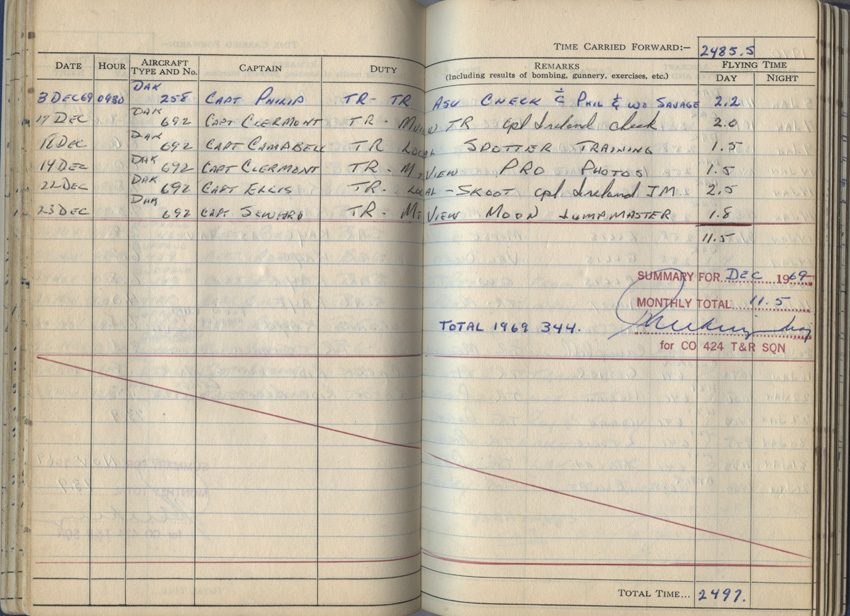 TIME CARRIED FORWARD:— 2485.5
DATE HOUR AIRCRAFT TYPE AND No. CAPTAIN DUTY REMARKS (Including results of bombing, gunnery, exercises, etc.) FLYING TIME DAY NIGHT
3 DEC 69 0930 DAK 258 CAPT PHILIP TR - TR ASU CHECK c̄ PHIL & WO SAVAGE 2.2
17 DEC DAK 692 CAPT CLERMONT TR - TR cpl Ireland check 2.0
18 DEC DAK 692 CAPT CAMPBELL TR LOCAL SPOTTER TRAINING 1.5
19 DEC DAK 692 CAPT CLERMONT TR - Mt VIEW PRO PHOTOS 1.5
22 DEC DAK 692 CAPT ELLIS TR - LOCAL - SKOOT cpl Ireland JM 2.5
23 DEC DAK 692 CAPT SEWARD TR - Mt VIEW MOON JUMPMASTER 1.8
11.5
SUMMARY FOR DEC 1969
MONTHLY TOTAL 11.5
TOTAL 1969 344.
for CO 424 T&R SQN
TOTAL TIME... 2497.